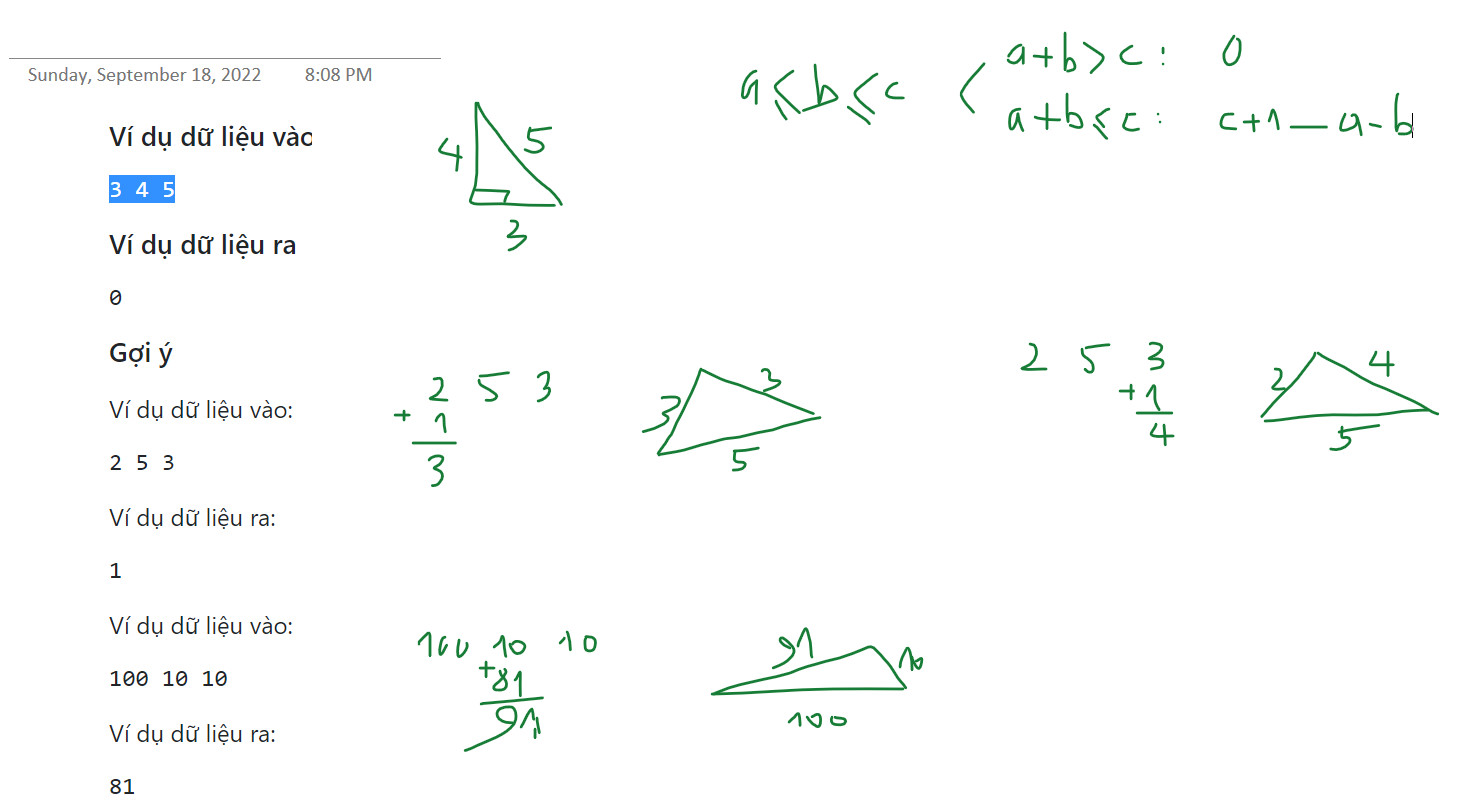 Sunday, September 18, 2022 8:08 PM
Ví dụ dữ liệu vào
3 4 5
Ví dụ dữ liệu ra
0
Gợi ý
Ví dụ dữ liệu vào:
2 5 3
Ví dụ dữ liệu ra:
1
Ví dụ dữ liệu vào:
100 10 10
Ví dụ dữ liệu ra:
81
4 5
3
a ⩽ b ⩽ c
a+b > c : 0
a+b ⩽ c : c+1 — a - b
2 5 3
+ 1
3
3 3
5
2 5 3
+ 1
4
2 4
5
100 10 10
+ 81
91
91 10
100